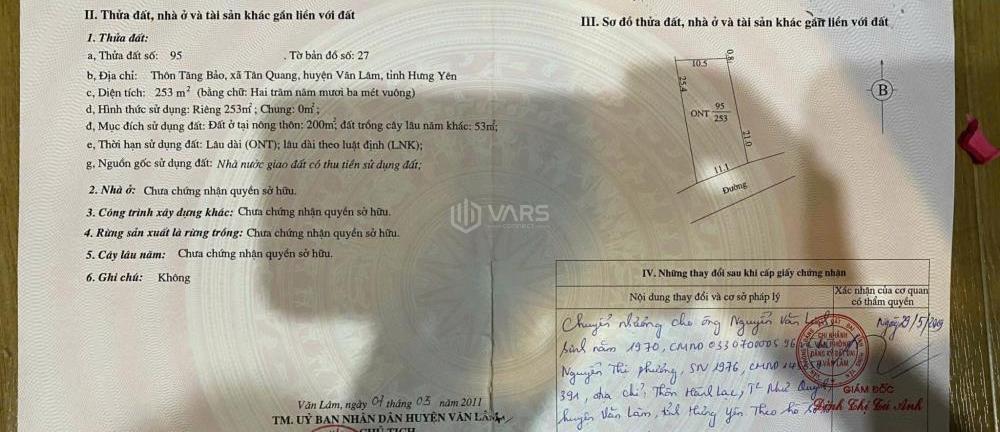 II. Thửa đất, nhà ở và tài sản khác gắn liền với đất
1. Thửa đất:
a, Thửa đất số: 95 . Tờ bản đồ số: 27
b, Địa chỉ: Thôn Tăng Bảo, xã Tân Quang, huyện Văn Lâm, tỉnh Hưng Yên
c, Diện tích: 253 m² (bằng chữ: Hai trăm năm mươi ba mét vuông)
d, Hình thức sử dụng: Riêng 253m²; Chung: 0m²;
đ, Mục đích sử dụng đất: Đất ở tại nông thôn: 200m²; đất trồng cây lâu năm khác: 53m²;
e, Thời hạn sử dụng đất: Lâu dài (ONT); lâu dài theo luật định (LNK);
g, Nguồn gốc sử dụng đất: Nhà nước giao đất có thu tiền sử dụng đất;
2. Nhà ở: Chưa chứng nhận quyền sở hữu.
3. Công trình xây dựng khác: Chưa chứng nhận quyền sở hữu.
4. Rừng sản xuất là rừng trồng: Chưa chứng nhận quyền sở hữu.
5. Cây lâu năm: Chưa chứng nhận quyền sở hữu.
6. Ghi chú: Không
Văn Lâm, ngày 01 tháng 03 năm 2011
TM. UỶ BAN NHÂN DÂN HUYỆN VĂN LÂM
CHỦ TỊCH
VARS
CONNECT
III. Sơ đồ thửa đất, nhà ở và tài sản khác gắn liền với đất
10.5
0.8
25.4
ONT 95
253
21.0
11.1
Đường
B
IV. Những thay đổi sau khi cấp giấy chứng nhận
Nội dung thay đổi và cơ sở pháp lý
Xác nhận của cơ quan
có thẩm quyền
Chuyển nhượng cho ông Nguyễn Văn
sinh năm 1970, CMND
Nguyễn Thị Phường, SN 1976, CMND
391, địa chỉ: Thôn Hành Lạc, TT Như Quỳnh
huyện Văn Lâm, tỉnh Hưng Yên Theo hồ sơ
CHI NHÁNH
VĂN PHÒNG
ĐĂNG KÝ ĐẤT ĐAI
H. VĂN LÂM
GIÁM ĐỐC
Đinh Thị Tú Anh